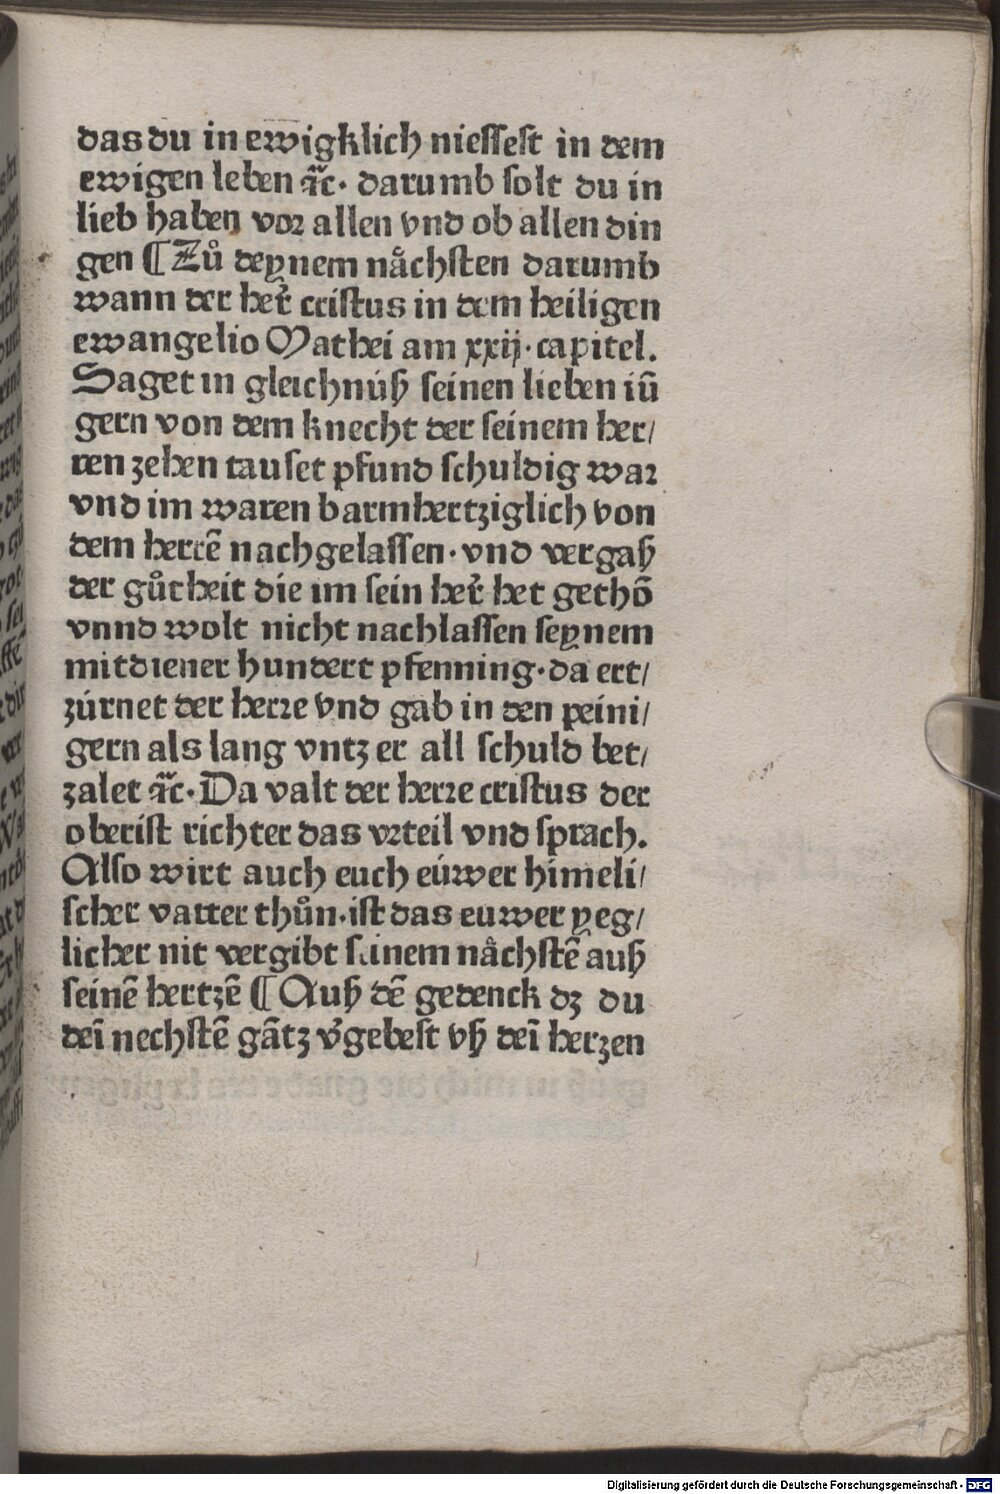 das du in ewigklich niessest in dem
ewigen leben ⁊c̃. darumb solt du in
lieb haben vor allen vnd ob allen din
gen ¶ Zů deynem nåchsten darumb
wann der her̃ cristus in dem heiligen
ewangelio Mathei am xxij. capitel.
Saget in gleichnúß seinen lieben iū
gern von dem knecht der seinem her/
ren zehen tauset pfund schuldig war
vnd im waren barmhertziglich von
dem herrē nachgelassen. vnd vergaß
der gůtheit die im sein her̃ het gethō
vnnd wolt nicht nachlassen seynem
mitdiener hundert pfenning. da ert/
zúrnet der herre vnd gab in den peini/
gern als lang vntz er all schuld bet/
zalet ⁊c̃. Da valt der herre cristus der
oberist richter das vrteil vnd sprach.
Also wirt auch euch eúwer himeli/
scher vatter thůn. ist das euwer yeg/
licher nit vergibt seinem nåchstē auß
seinē hertzē ¶ Auß dē gedenck dz du
deī nechstē gātz v̓gebest vß deī herzen
Digitalisierung gefördert durch die Deutsche Forschungsgemeinschaft - DFG